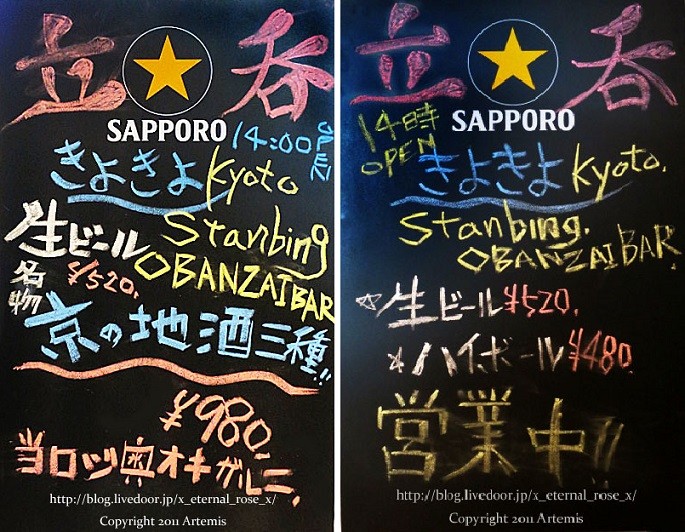 立呑
SAPPORO
14:00 OPEN
きよきよ Kyoto
Stanbing
OBANZAI BAR
生ビール
¥520.
名物
京の地酒三種!!
¥980.
オキガルニ、
http://blog.livedoor.jp/x_eternal_rose_x/
Copyright 2011 Artemis
立呑
SAPPORO
14時
OPEN
きよきよ Kyoto.
Stanbing.
OBANZAI BAR
☆生ビール ¥520.
☆ハイボール ¥480
営業中!!
http://blog.livedoor.jp/x_eternal_rose_x/
Copyright 2011 Artemis